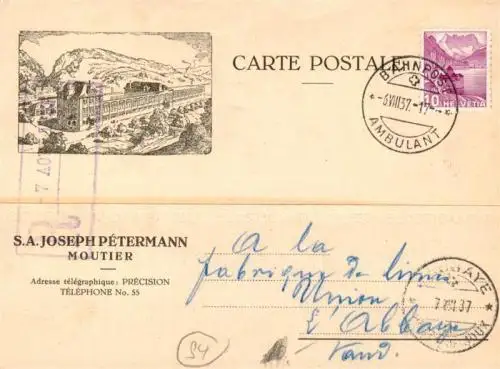 CARTE POSTALE
10 HELVETIA
BAHNPOST
-6VIII37.-17-
AMBULANT
-7 AOU
S.A. JOSEPH PÉTERMANN
MOUTIER
Adresse télégraphique: PRÉCISION
TÉLÉPHONE No. 55
A la
fabrique de limes
Union
L'Abbaye
Vaud.
7 VIII 37
94